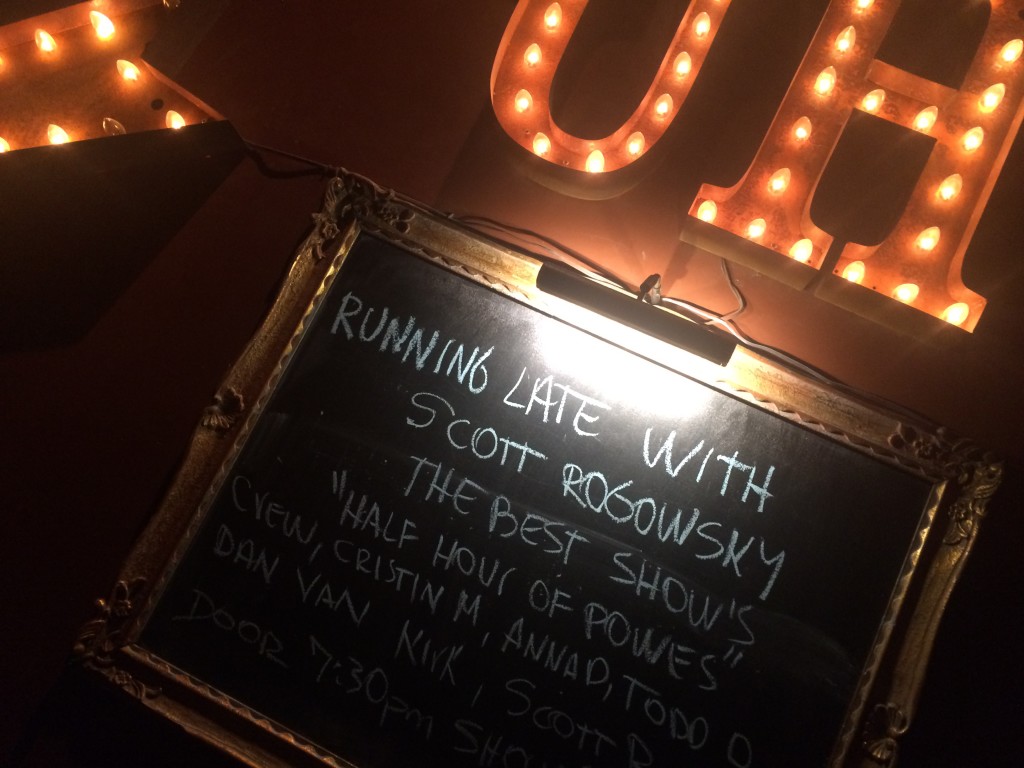 UH
RUNNING LATE WITH
SCOTT ROGOWSKY
THE BEST SHOW'S
"HALF HOUR OF POWES"
CREW, CRISTIN M, ANNAD, TODD D
DAN VAN KIRK, SCOTT R
DOOR 7:30pm SHO